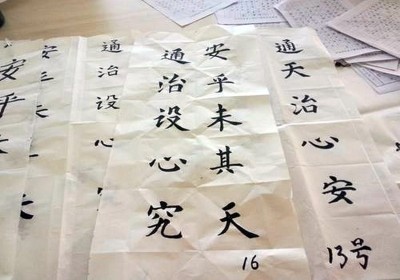 通天治心安
13号
安乎未其天
通治设心究
16
通治设心
安三
安乎